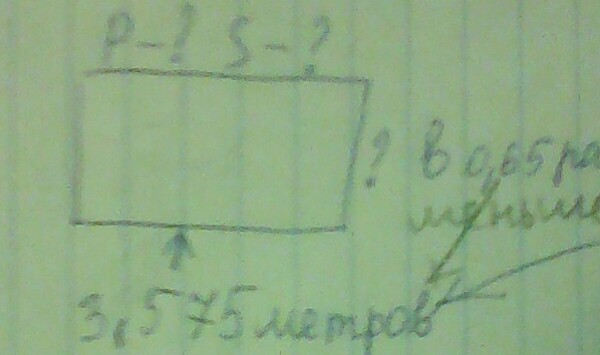 P-? S-?
? в 0,65 ра
меньш
3,575 метров